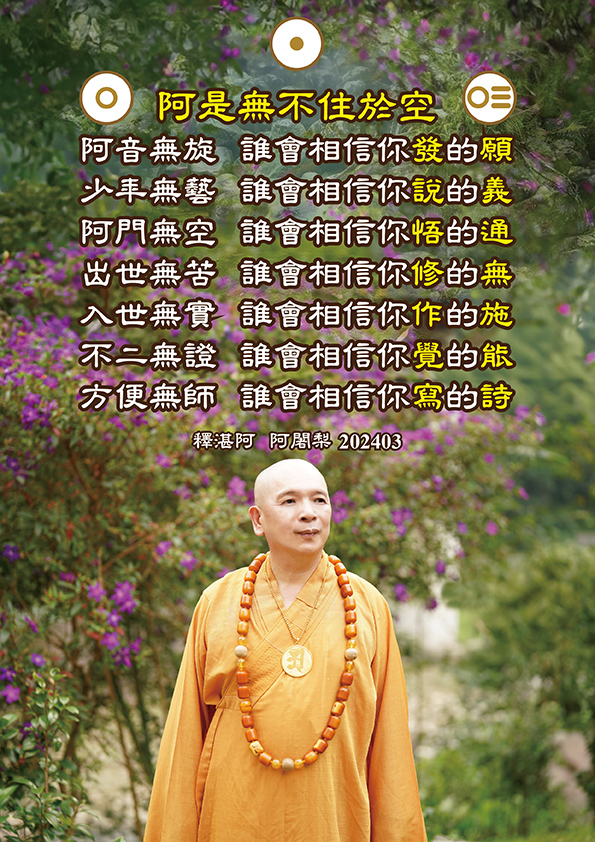 阿是無不住於空
阿音無旋 誰會相信你發的願
少年無藝 誰會相信你說的義
阿門無空 誰會相信你悟的通
出世無苦 誰會相信你修的無
入世無實 誰會相信你作的施
不二無證 誰會相信你覺的能
方便無師 誰會相信你寫的詩
釋湛阿 阿闍梨 202403